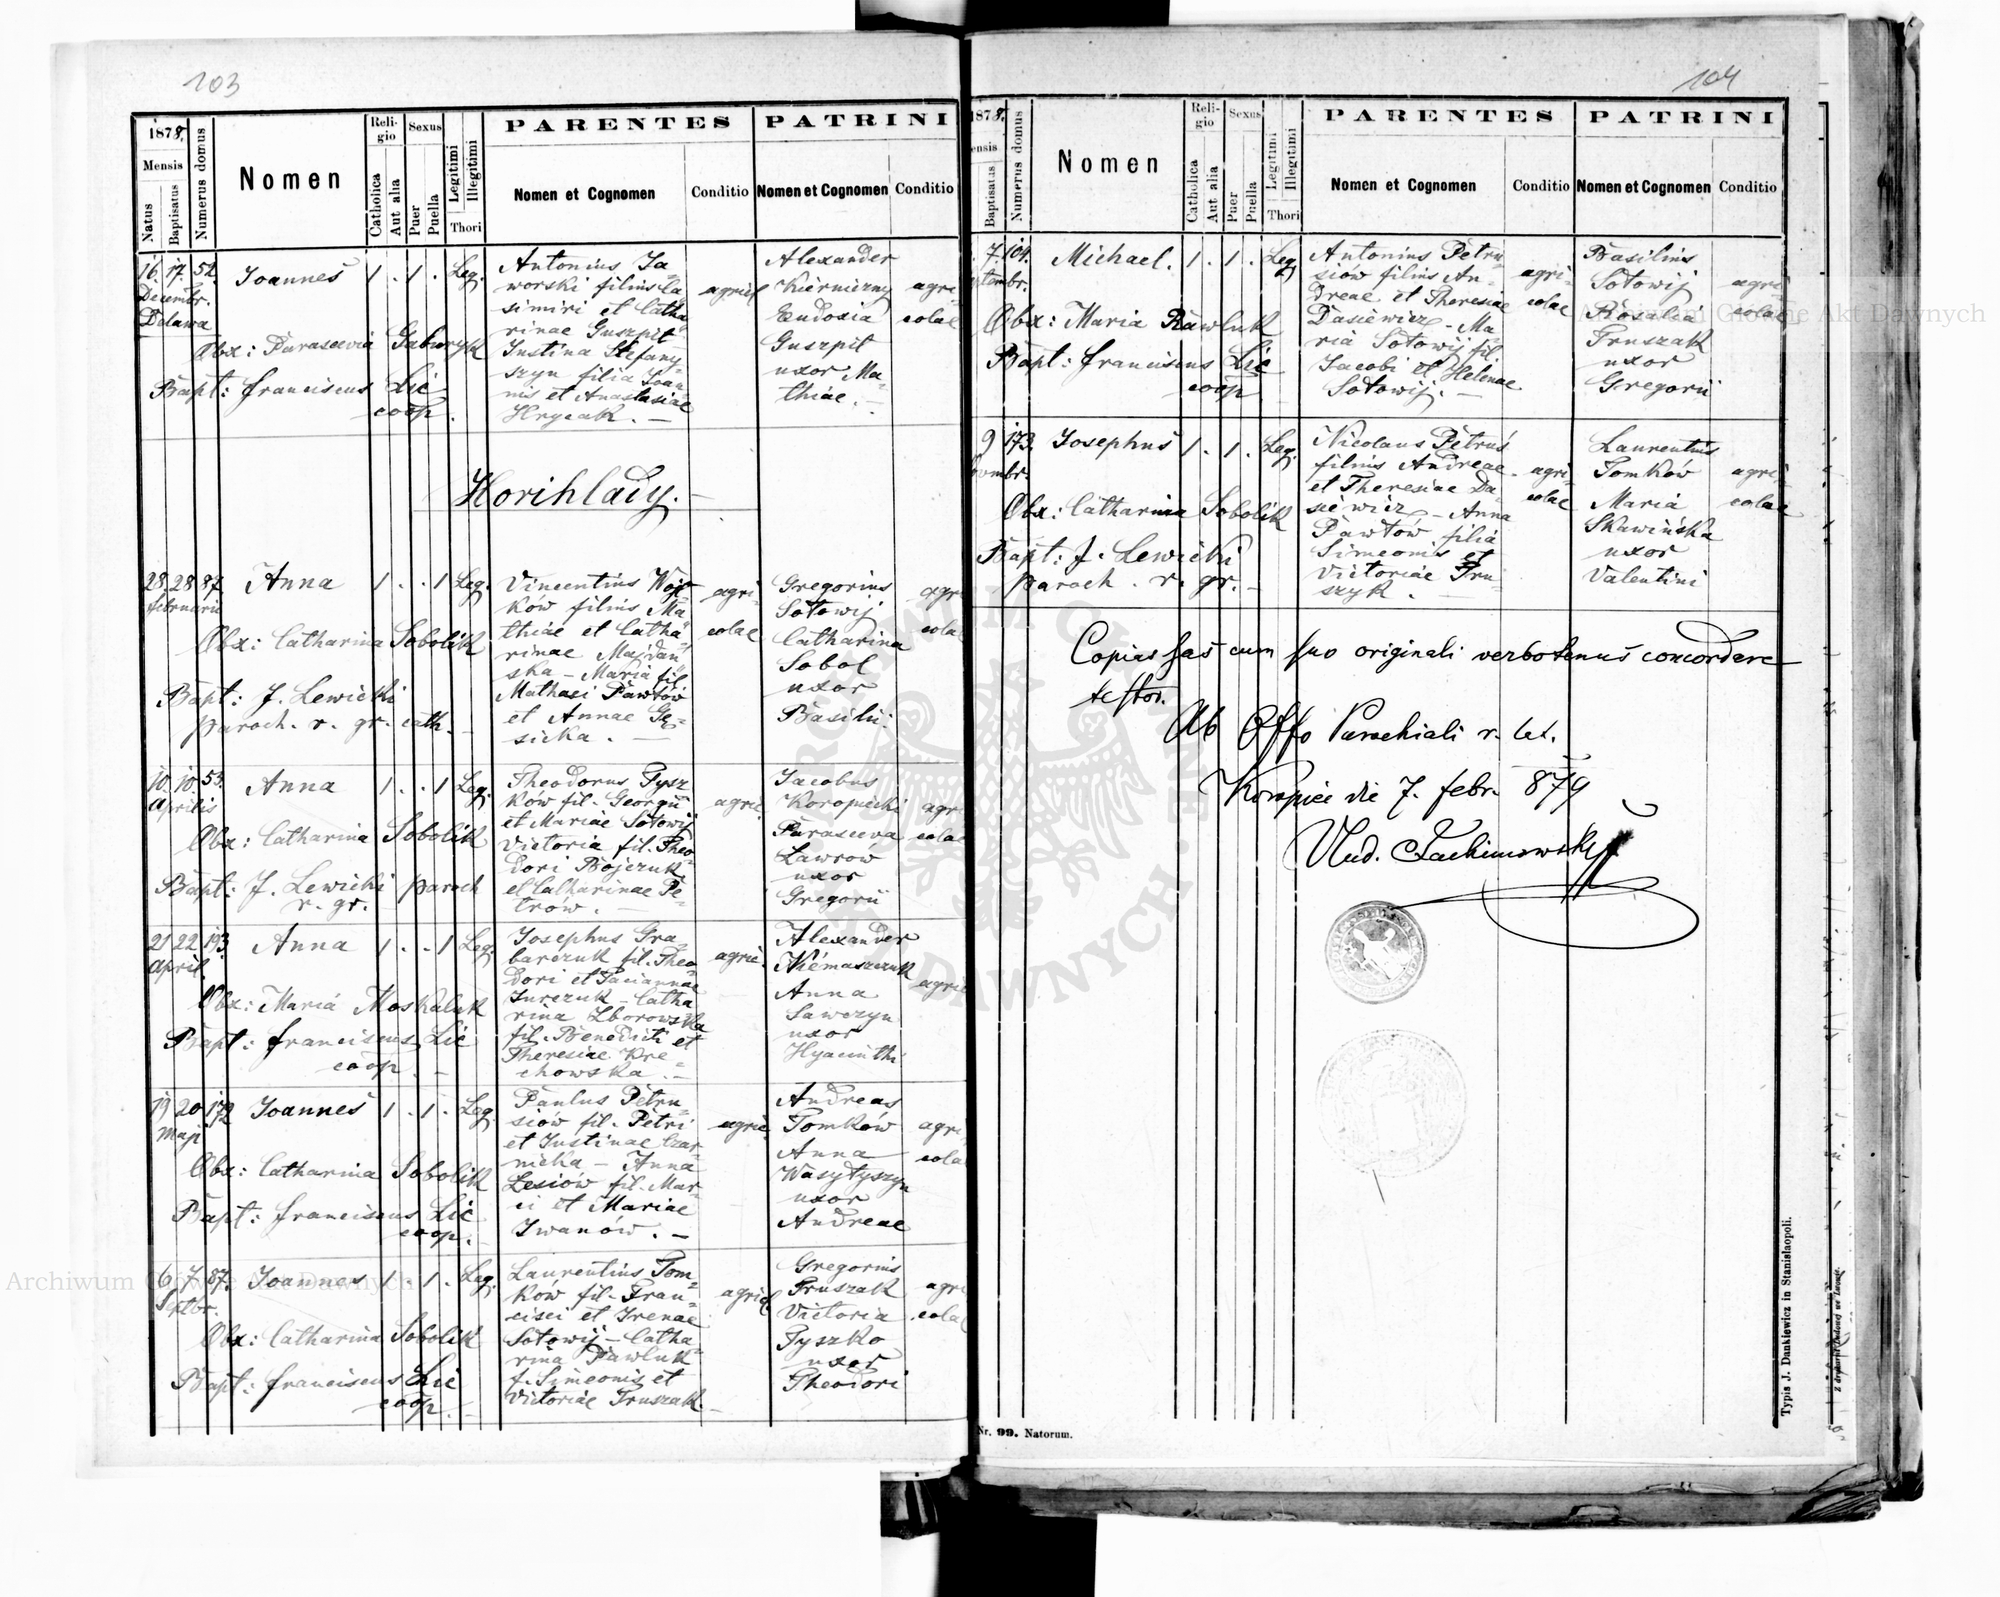 103
1878.
Mensis
Natus
Baptisatus
Numerus domus
Nomen
Religio
Catholica
Aut alia
Sexus
Puer
Puella
Legitimi
Illegitimi
Thori
PARENTES
Nomen et Cognomen
Conditio
PATRINI
Nomen et Cognomen
Conditio
16. 17. 52. Joannes 1 . 1 . Leg.
Decembr.
Delawa
Obx: Parascevia Gaburyk
Bapt: Franciscus Lic
coop.
Antonius Ja-
worski filius Ca-
simiri et Catha-
rinae Guszpit
Justina Stefany-
szyn filia Joan-
nis et Anastasiae
Hrycak. —
agricol
Alexander
Kierniczny
Eudoxia
Guszpit
uxor Ma-
thiae. —
agri-
colae
Horihlady. —
28. 28. 87. Anna 1 . . 1 Leg.
februarii
Obx: Catharina Sobolik
Bapt: J. Lewicki
paroch. r. gr. cath. —
Vincentius Wojt-
ków filius Ma-
thiae et Catha-
rinae Majdań-
ska – Maria fil.
Mathaei Pawłów
et Annae Gę-
sicka. —
agri-
colae
Gregorius
Sołowij
Catharina
Sobol
uxor
Basilii.
agri
colae
10. 10. 53. Anna 1 . . 1 Leg.
Aprilis
Obx: Catharina Sobolik
Bapt: J. Lewicki paroch
r. gr.
Theodorus Tysz-
ków fil. Georgii
et Mariae Sołowij
Victoria fil. Theo-
dori Bojczuk
et Catharinae Pe-
trów. —
agric.
Jacobus
Koropecki
Parasceva
Ławrów
uxor
Gregorii
agri
colae
21 22 193 Anna 1 . . 1 Leg.
April.
Obx: Maria Moskaluk
Bapt: Franciscus Lic
coop. —
Josephus Gra-
barczuk fil. Theo-
dori et Paciannae
Jurczuk – Catha-
rina Zborowska
fil. Benedicti et
Theresiae Kre-
chowska. —
agric.
Alexander
Niemaszczuk
Anna
Sawczyn
uxor
Hyacinthi
agric
19 20 172 Joannes 1 . 1 . Leg.
Maji
Obx: Catharina Sobolik
Bapt: Franciscus Lic
coop. —
Paulus Petru-
siów fil. Petri
et Justinae Czar-
niecka – Anna
Lesiów fil. Mar-
ci et Mariae
Iwanów. —
agric.
Andreas
Tomków
Anna
Wasyłyszyn
uxor
Andreae
agri
colae
6 7. 87. Joannes 1 . 1 . Leg.
Septbr.
Obx: Catharina Sobolik
Bapt: Franciscus Lic
coop. —
Laurentius Tom-
ków fil. Fran-
cisci et Irenae
Sołowij – Catha-
rina Pawluk
f. Simeonis et
Victoriae Pruszak. —
agricol
Gregorius
Pruszak
Victoria
Tyszko
uxor
Theodori
agri
colae
104
1878.
ensis
Baptisatus
Numerus domus
Nomen
Religio
Catholica
Aut alia
Sexus
Puer
Puella
Legitimi
Illegitimi
Thori
PARENTES
Nomen et Cognomen
Conditio
PATRINI
Nomen et Cognomen
Conditio
7. 104. Michael. 1 . 1 . Leg
tembr.
Obx: Maria Pawluk
Bapt: Franciscus Lic
coop
Antonius Petru-
siów filius An-
dreae et Theresiae
Dasiewicz – Ma-
ria Sołowij fil.
Jacobi et Helenae
Sołowij. —
agri-
colae
Basilius
Sołowij
Rosalia
Pruszak
uxor
Gregorii
agri-
colae
9 173. Josephus 1 . 1 . Leg.
ovembr.
Obx: Catharina Sobolik
Bapt: J. Lewicki
paroch. r. gr. —
Nicolaus Petruś
filius Andreae
et Theresiae Da-
siewicz – Anna
Pawłów filia
Simeonis et
Victoriae Pru-
szyk. —
agri-
colae
Laurentius
Tomków
Maria
Skawińska
uxor
Valentini
agri-
colae
Copias has cum suo originali verbotenus concordare
testor.
Ab Offo Parochiali r. lat.
Koropiec die 7. febr. 879
Vlad. Jachimowski
Nr. 99. Natorum.
Typis J. Dankiewicz in Stanislaopoli.
Archiwum Główne Akt Dawnych
Archiwum Główne Akt Dawnych
ARCHIWUM GŁÓWNE AKT DAWNYCH